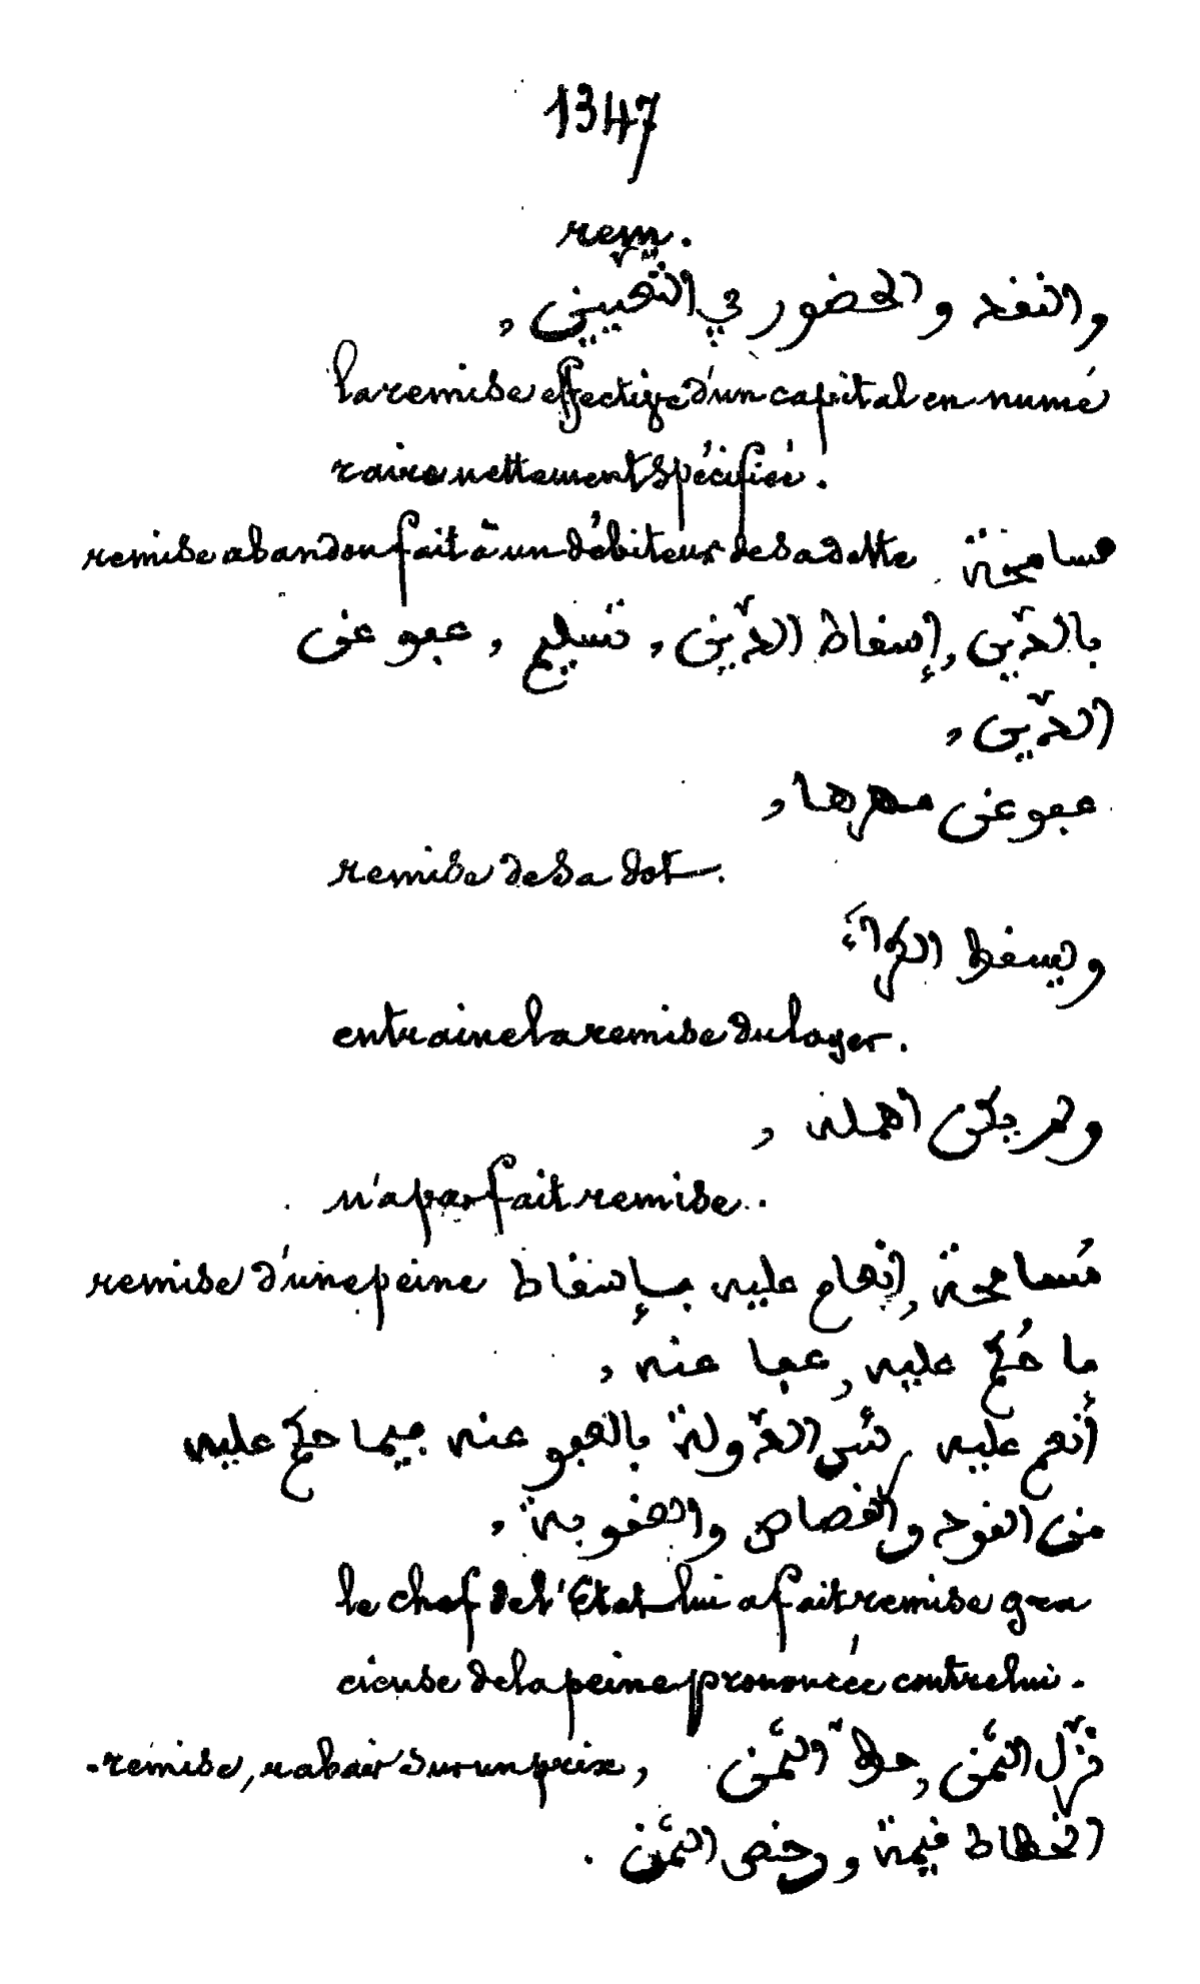 1347
rem.
والنقد والحضور في التعيين ,
la remise effective d'un capital en numé
raire nettement spécifiée.
remise abandon fait à un débiteur de sa dette مسامحة
بالدَّين, إسقاط الدَّين, تسليم, عفو عن
الدَّين,
عفو عن مهرها,
remise de sa dot.
ويسقط الكراءَ
entraine la remise du loyer.
ولم يكن اهمله ,
n'a pas fait remise.
remise d'une peine مُسامحة, إنعام عليه بإسقاط
ما حُكم عليه, عفا عنه,
أنعم عليه الدّولة بالعفو عنه فيما حكم عليه
من القود والقصاص والعقوبة,
le chef de l'Etat lui a fait remise gra
cieuse de la peine prononcée contre lui.
-remise, rabais sur un prix, نزّل الثَّمن, حطّ الثَّمن
انحطاط قيمة, ورخص الثَّمن.